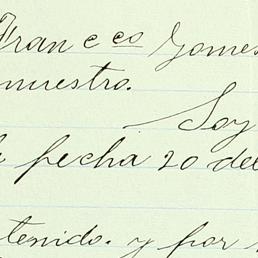 Franc.co Gomes
nuestro.
Soy
fecha 20 del
tenido. y por